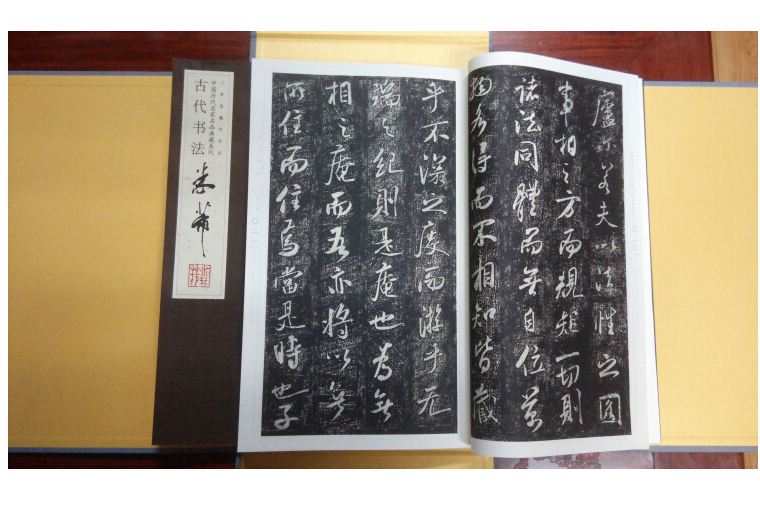 古代书法
中国历代名家名品典藏系列
米芾
廬尔若夫以法性之圓
事相之方而規矩一切則
諸法同體而無自位萬
物各得而不相知皆藏
乎不深之度而游乎无
端之紀則是庵也為無
相之庵而吾亦將以無
所住而住焉當是時也子
〇二一